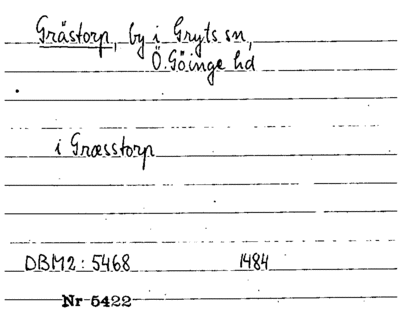 Gråstorp, by i Gryts sn,
Ö. Göinge hd
i Græsstorp
DBM2: 5468 1484
Nr 5422